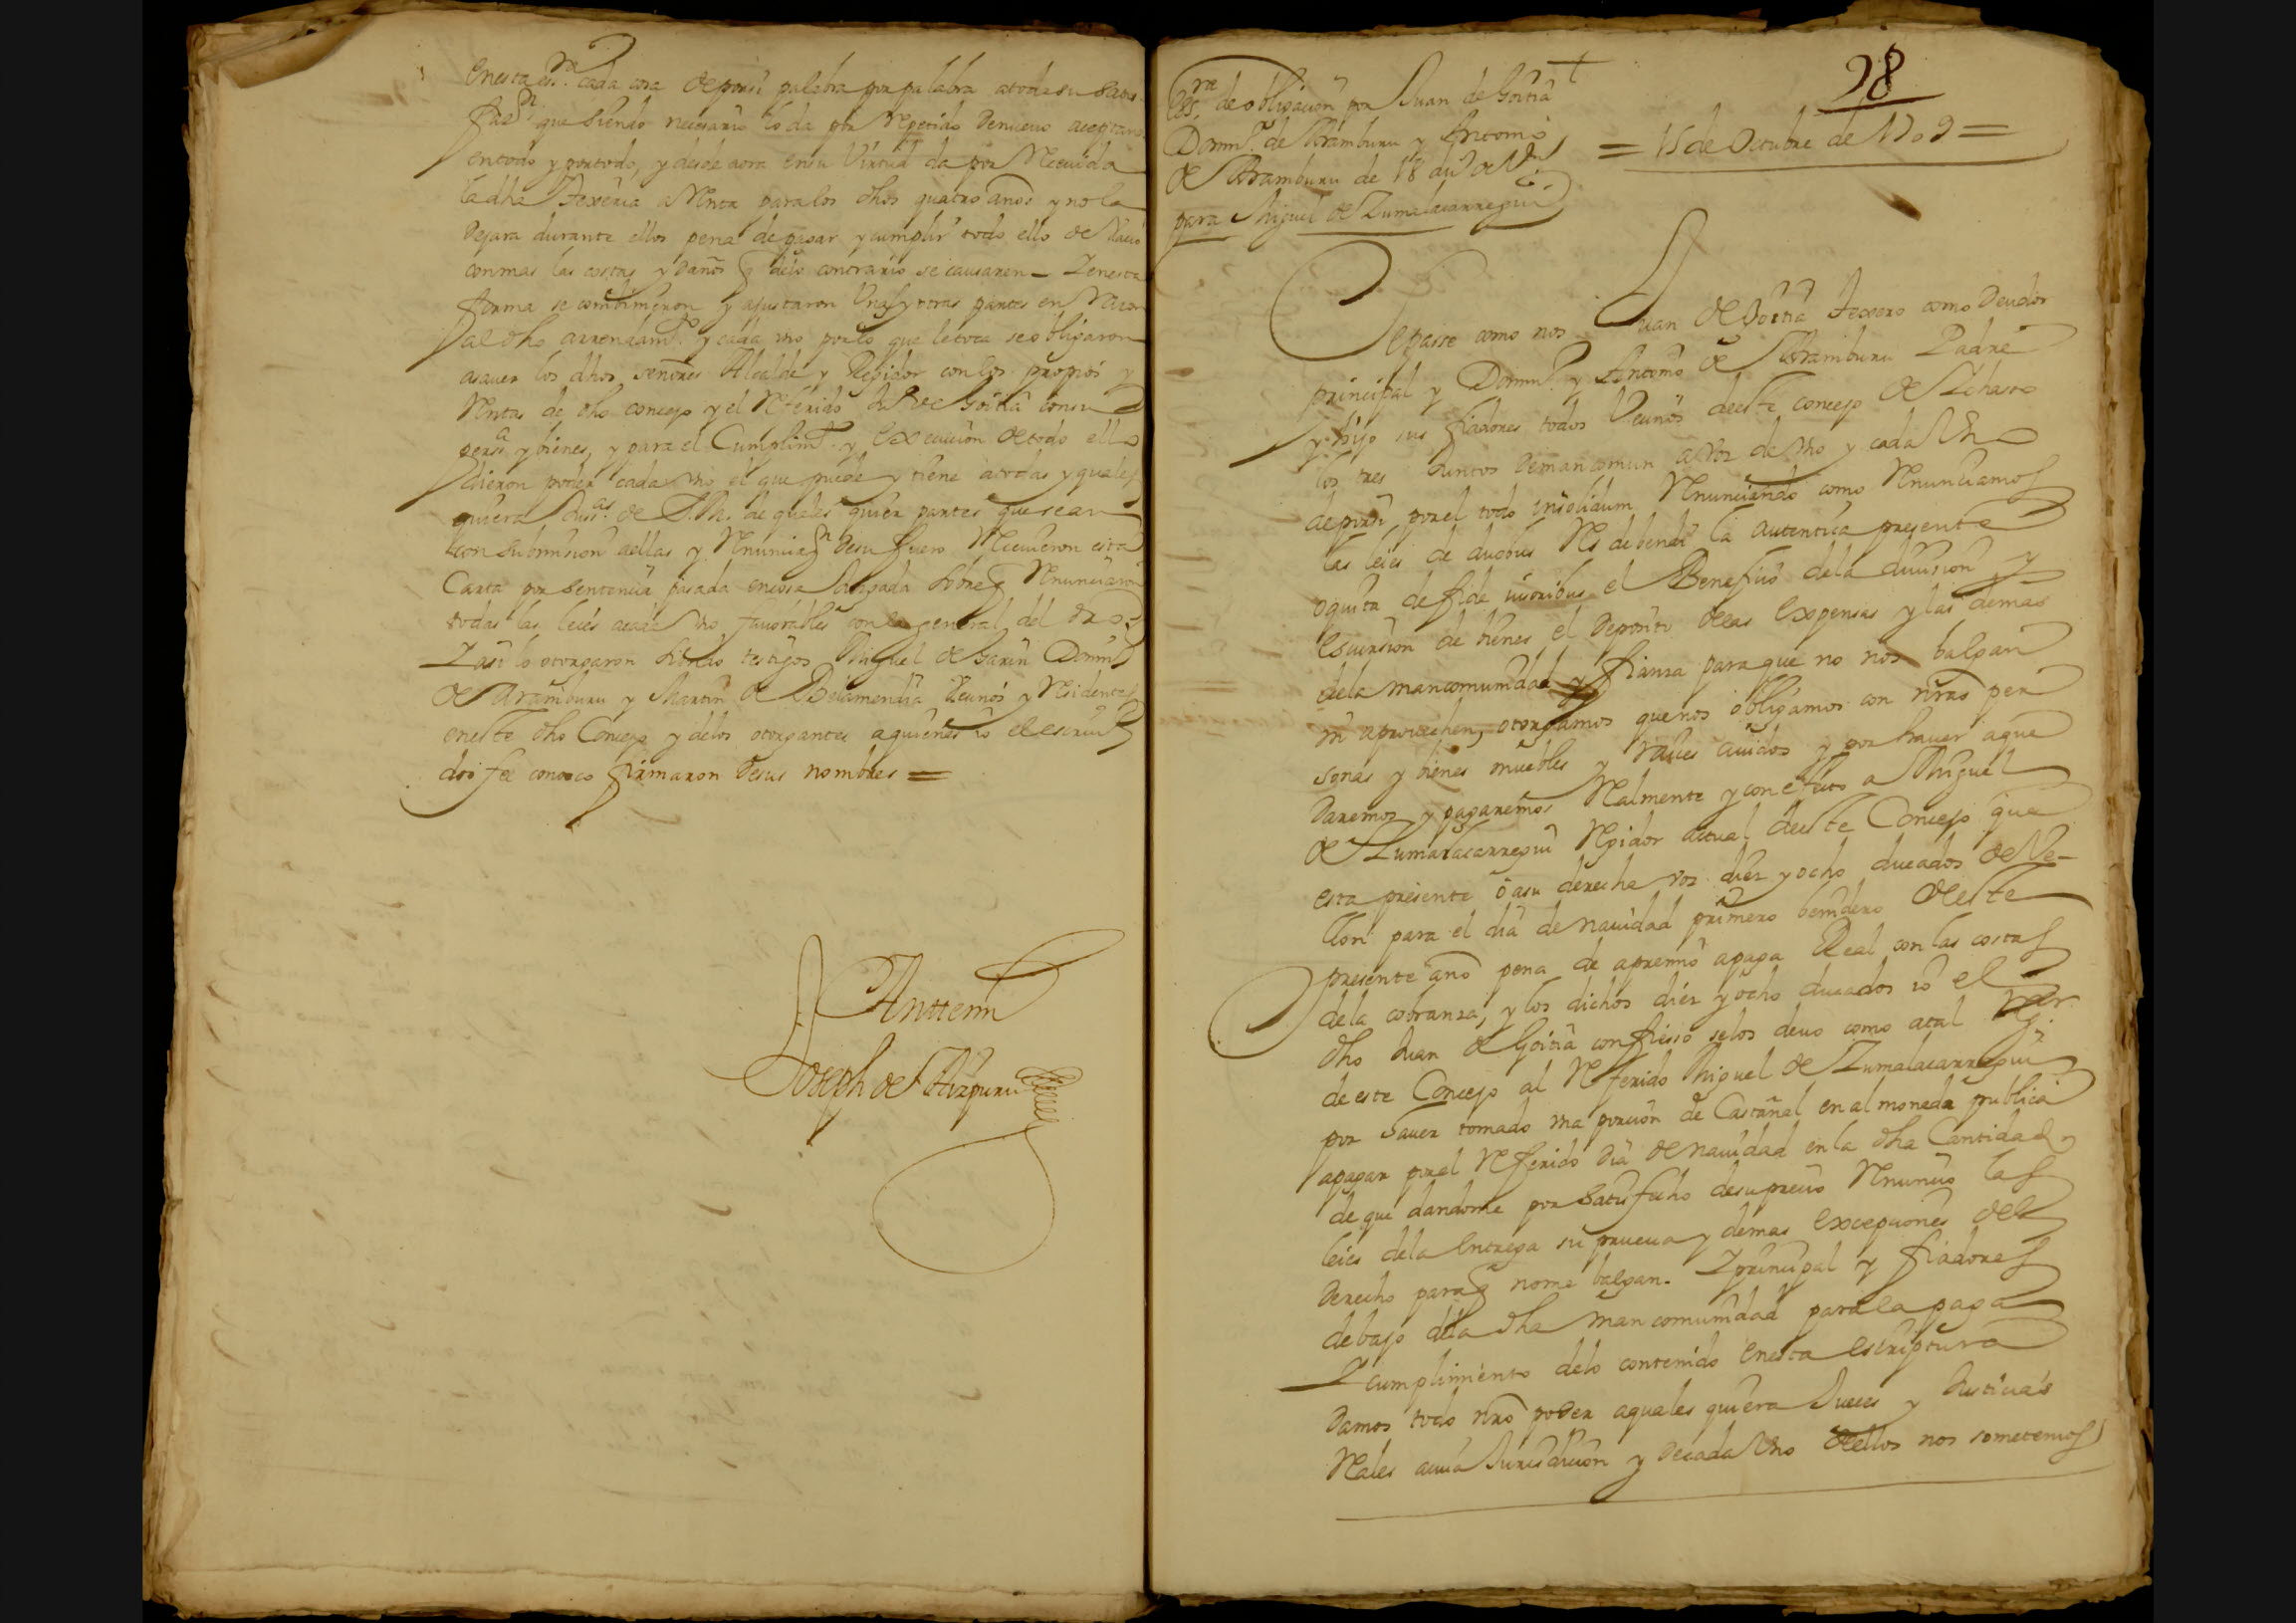 en esta ess.ra cada cosa de por si palabra por palabra a toda su satis-
faz.n que siendo necesario lo da por repetido de nueuo aceptan
en todo y por todo, y desde aora en su Virtud da por Receuida
la dha Texeria a Renta para los dhos quatro años y no la
dejara durante ellos pena de pagar y cumplir todo ello de Vacio
con mas las costas y daños q delo contrario se causaren – Y en esta
forma se combinieron y ajustaron Unas y otras partes en Razon
del dho arrendam.to y cada vno por lo que le toca se obligaron
a sauer los dhos señores Alcalde y Regidor con los propios y
Rentas de dho concejo y el Referido Ju.o de Goitia con su
pers.a y bienes, y para el Cumplim.to y execucion de todo ello
dieron poder cada vno el que puede y tiene a todas y quales
quiera Jus.as de S.M. de quales quier partes que sean
con submision a ellas y Renunciaz.n de su fuero Receuieron esta
Carta por sentencia pasada en cosa Juzgada sobre q Renunciaron
todas las leies de cada vno fauorables con la general del dro =
Y asi lo otorgaron siendo testigos Miguel de Garin Domin.o
de Aramburu y Martin de Belamendia Vecinos y Residentes
en este dho Concejo y de los otorgantes a quienes io el escriu.o
doi fee conozco firmaron de sus nombres =
Antte mi
Joseph de Aizpuru
28
Ess.ra de obligacion por Juan de Goitia
Domin.o de Aramburu y Antonio
de Aramburu de 18 du.os de V.on
para Miguel de Zumalacarregui
= 15 de Octubre de 1709 =
Sepasse como nos Juan de Goitia Texero como deudor
principal y Domin.o y Antonio de Aramburu Padre
y hijo sus fiadores todos Vecinos de este concejo de Ichaso
los tres Juntos de mancomun a voz de vno y cada Vno
de por si por el todo insolidum Renunciando como Renunciamos
las leies de duobus Res debendi la autentica presente
oquita de fide iusoribus el Beneficio de la diuision y
escursion de bienes el deposito de las expensas y las demas
de la mancomunidad y fianza para que no nos balgan
ni aprouechen, otorgamos que nos obligamos con nras per
sonas y bienes muebles y raices auidos y por hauer a que
daremos y pagaremos Realmente y con efeto a Miguel
de Zumalacarregui Regidor actual de este Concejo que
esta presente o a su derecha voz diez y ocho ducados de Ve-
llon para el dia de nauidad primero benidero de este
presente año pena de apremio a paga Real con las costas
de la cobranza; y los dichos diez y ocho ducados io el
dho Juan de Goitia confiesso selos deuo como a tal Regor.
de este Concejo al Referido Miguel de Zumalacarregui
por hauer tomado vna porcion de Castañal en almoneda publica
a pagar por el Referido dia de nauidad en la dha Cantidad y
de que dandome por satisfecho de su precio Renuncio las
leies de la entrega su prueua y demas excepciones del
derecho para q no me balgan. Y principal y fiadores
debajo de la dha mancomunidad para la paga
Y cumplimiento delo contenido en esta escriptura
damos todo nro poder a quales quiera Jueces y Justicias
Reales a cuia Jurisdicion y de cada Vno de ellos nos sometemos